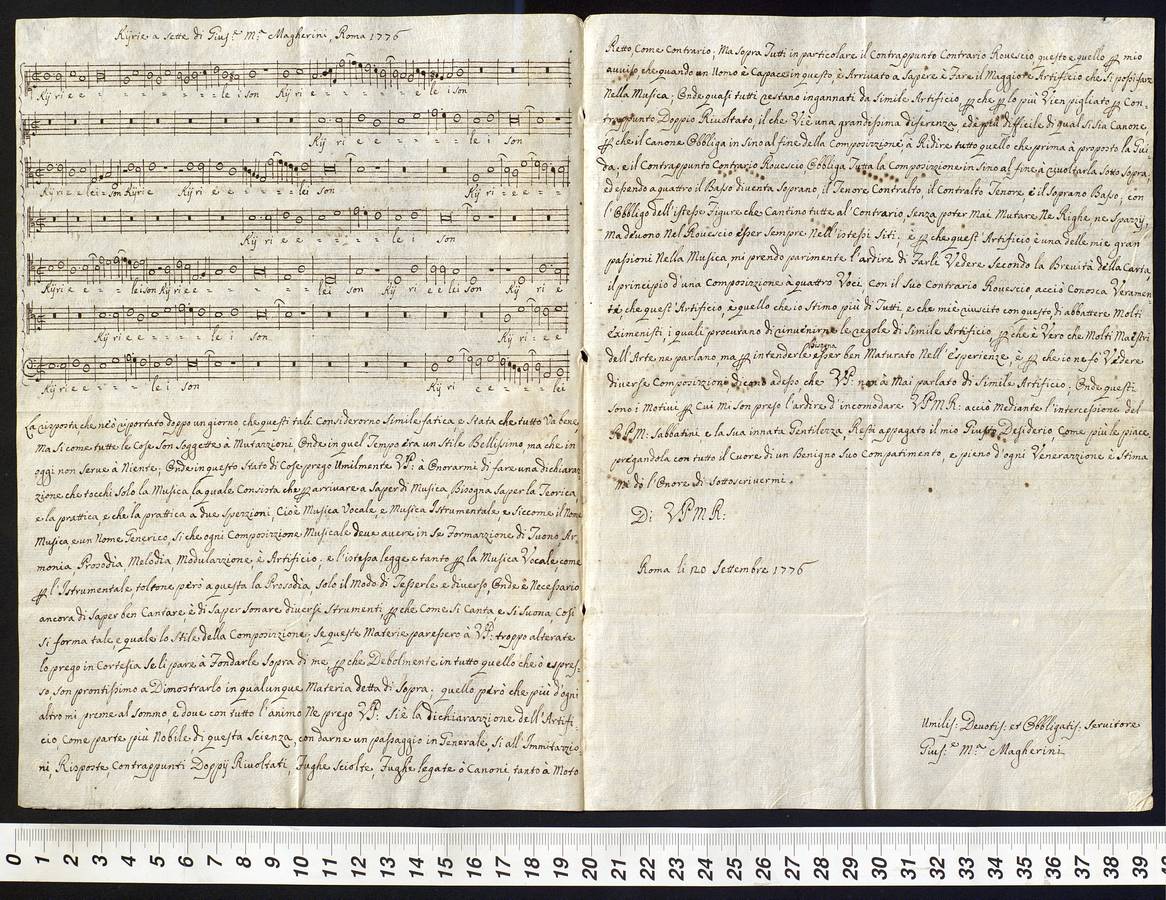 Kÿrie a Sette di Gius:e M:a Magherini, Roma 1776
Kÿ ri e e le i son Kÿ ri e e le i son
Kÿ ri e e le i son
Kÿ rie e lei son Kÿrie Kÿ ri e e e le i son Kÿ ri e e
Kÿ ri e e le i son
Kÿ rie e e lei son Kÿ rie e e lei son Kÿ ri e e lei son Kÿ ri e
Kÿ ri e e le i son Kÿ ri e e
Kÿ ri e e le i son Kÿ ri e e lei
La risposta che ne ò riportato doppo un giorno, che questi tali Considerorno Simile fatica, e Stata che tutto Và bene
Ma Si come tutte le Cose Son Soggette à Mutazzioni, Onde in quel Tempo èra un Stile Bellissimo, ma che in
oggi non Serve à Niente; Onde in questo Stato di Cose prego Umilmente VP: à Onorarmi di fare una dichiara=
zione che tocchi Solo la Musica, la quale Consista che per arrivare a Saper di Musica Bisogna Saper la Teorica,
e la prattica, e che la prattica a due Spezzioni, Cioè Musica Vocale, e Musica Istrumentale, e Siccome il Nome
Musica, e un Nome Generico, Si che ogni Composizzione Musicale deve avere in Se Formazzione di Tuono, Ar,
monia, Prosodia, Melodia, Modulazzione, è Artificio; e l'istessa legge e tanto per la Musica Vocale, come
per l'Istrumentale, toltone però a questa la Prosodia, Solo il Modo di Tesserle e diverso, Onde è Necessario
ancora di Saper ben Cantare, è di Saper Sonare diversi Strumenti, per che Come Si Canta e Si Suona, Cosi
Si forma tale, e quale lo Stile della Composizzione, Se queste Materie paressero à VP: troppo alterate
lo prego in Cortesia Se li pare à Fondarle Sopra di me, per che Debolmente in tutto quello che ò espres=
so, Son prontissimo a Dimostrarlo in qualunque Materia detta di Sopra; quello però che più d'ogni
altro mi preme al Sommo, e dove con tutto l'animo Ne prego VP: Si è la dichiarazzione dell'Artifi=
cio, Come parte più Nobile di questa Scienza, con darne un passaggio in Generale, Si all'Immitazzio
ni, Risposte, Contrappunti Doppÿ Rivoltati, Fughe Sciolte, Fughe legate ò Canoni, tanto à Moto
Retto, Come Contrario; Ma Sopra Tutti in particolare il Contrappunto Contrario Rovescio questo e quello per mio
avviso che quando un Uomo è Capace in questo, è Arrivato a Sapere è Fare il Maggiore Artificio che Si possi fare
Nella Musica; Onde quasi tutti restano ingannati da Simile Artificio, per che per lo più Vien pigliato per Con,
trappunto Doppio Rivoltato, il che Vi è una grandissima diferenza, ed è più difficile di qual Si Sia Canone,
per che il Canone Obbliga in Sino al fine della Composizzione à Ridire tutto quello che prima à proposto la Gui
da; e il Contrappunto Contrario Rovescio Obbliga Tutta la Composizzione in Sino al fine à rivoltarla Sotto Sopra;
ed essendo a quattro il Basso diventa Soprano, il Tenore Contralto, il Contralto Tenore, è il Soprano Basso; con
l'Obbligo dell'istesse Figure che Cantino tutte al Contrario, Senza poter Mai Mutare Ne Righe ne Spazzÿ,
Ma devono Nel Rovescio esser Sempre Nell'istessi Siti; è per che quest'Artificio è una delle mie gran
passioni Nella Musica, mi prendo parimente l'ardire di Farle Vedere Secondo la Brevità della Carta
il principio d'una Composizzione à quattro Voci, con il Suo Contrario Rovescio, acciò Conosca Veramen=
te che quest'Artificio, è quello che io Stimo più di Tutti, e che mi è riuscito con questo di abbattere Molti
Eximenisti, i quali procurano di rinvenirne le regole di Simile Artificio, per che è Vero che Molti Maestri
dell'Arte ne parlano, ma per intenderle Bisogna esser ben Maturato Nell'esperienze, è per che io ne fò Vedere
diverse Composizzioni dicono adesso che VP: non à Mai parlato di Simile Artificio; Onde questi
Sono i Motivi per Cui mi Son preso l'ardire d'incomodare VPMR: acciò mediante l'intercessione del
RPM: Sabbatini e la Sua innata Gentilezza, Resti appagato il mio Giusto Desiderio, Come più le piace,
pregandola con tutto il Cuore di un Benigno Suo Compatimento, e pieno d'ogni Venerazzione è Stima
mi dò l'Onore di Sottoscrivermi.
Di VPMR:
Roma li 20 Settembre 1776
Umilis: Devotis: et Obbligatis: Servitore
Gius:e M:a Magherini
0 1 2 3 4 5 6 7 8 9 10 11 12 13 14 15 16 17 18 19 20 21 22 23 24 25 26 27 28 29 30 31 32 33 34 35 36 37 38 39